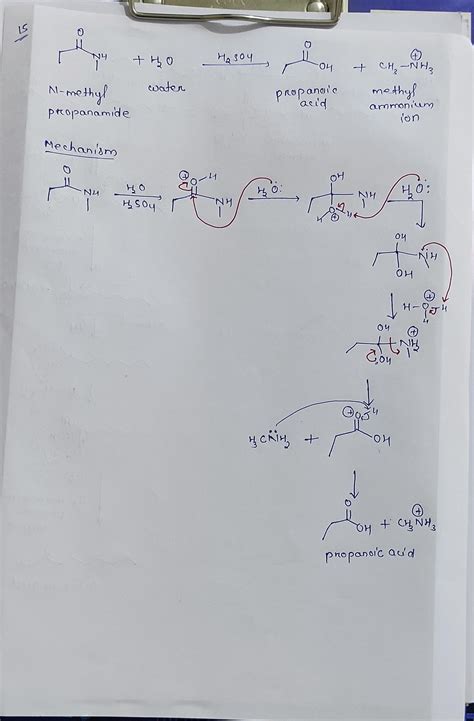 15
O
NH + H2O H2SO4 O OH + CH3-NH3 ⊕
N-methyl propanamide water propanoic acid methyl ammonium ion
Mechanism
O NH H2O H2SO4 ⊕ O H NH H2Ö: OH NH H O H ⊕ H2Ö:
OH NH OH
H-O-H H ⊕
OH NH2 ⊕ OH
H3CN̈H2 + ⊕ O H OH
O OH + CH3NH3 ⊕
propanoic acid